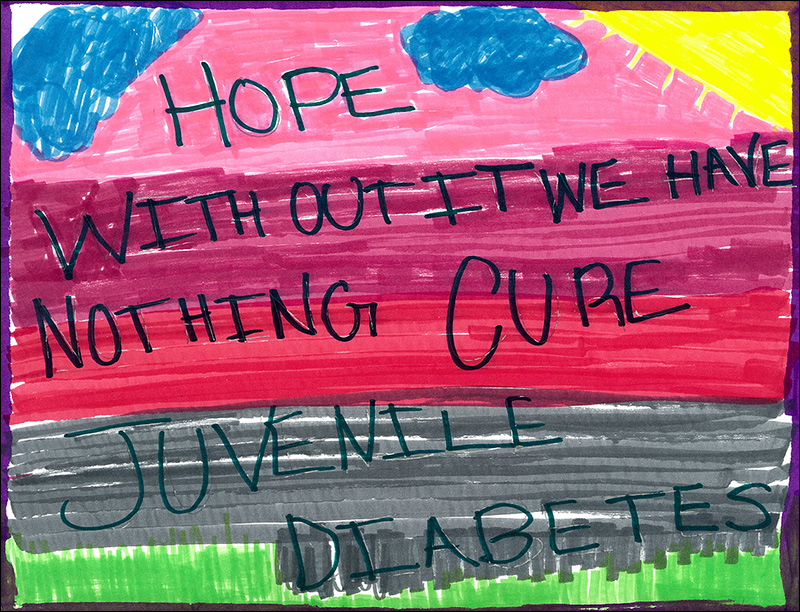 HOPE
WITH OUT IT WE HAVE
NOTHING CURE
JUVENILE
DIABETES